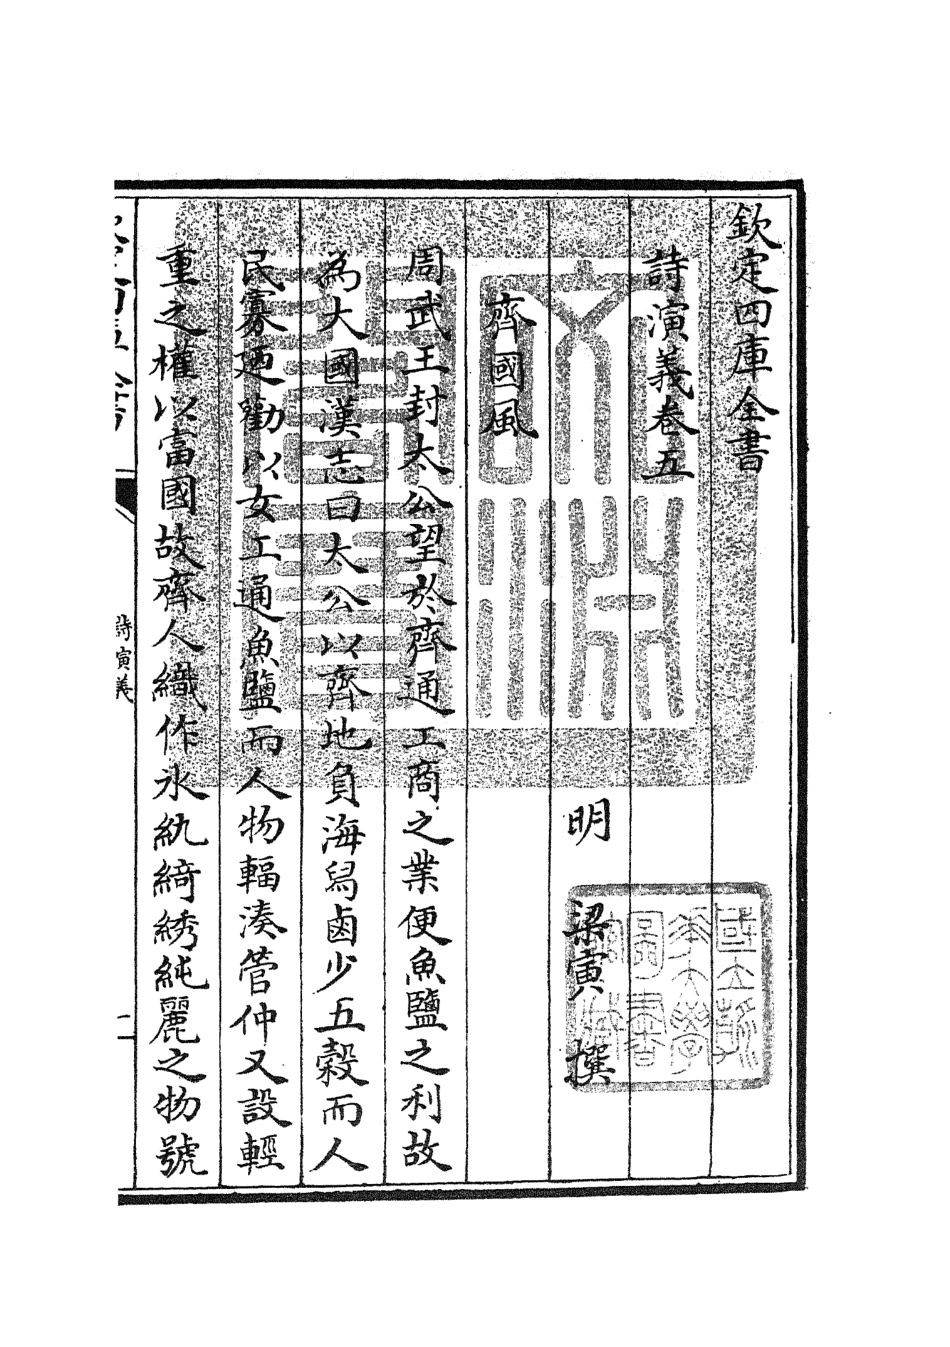 欽定四庫全書
詩演義卷五
明 梁寅 撰
齊國風
周武王封太公望於齊通工商之業便魚鹽之利故
為大國漢志曰大公以齊地負海舄鹵少五穀而人
民寡廼勸以女工通魚鹽而人物輻湊管仲又設輕
重之權以富國故齊人織作氷紈綺綉純麗之物號
詩演義
國立清華大學圖書館藏